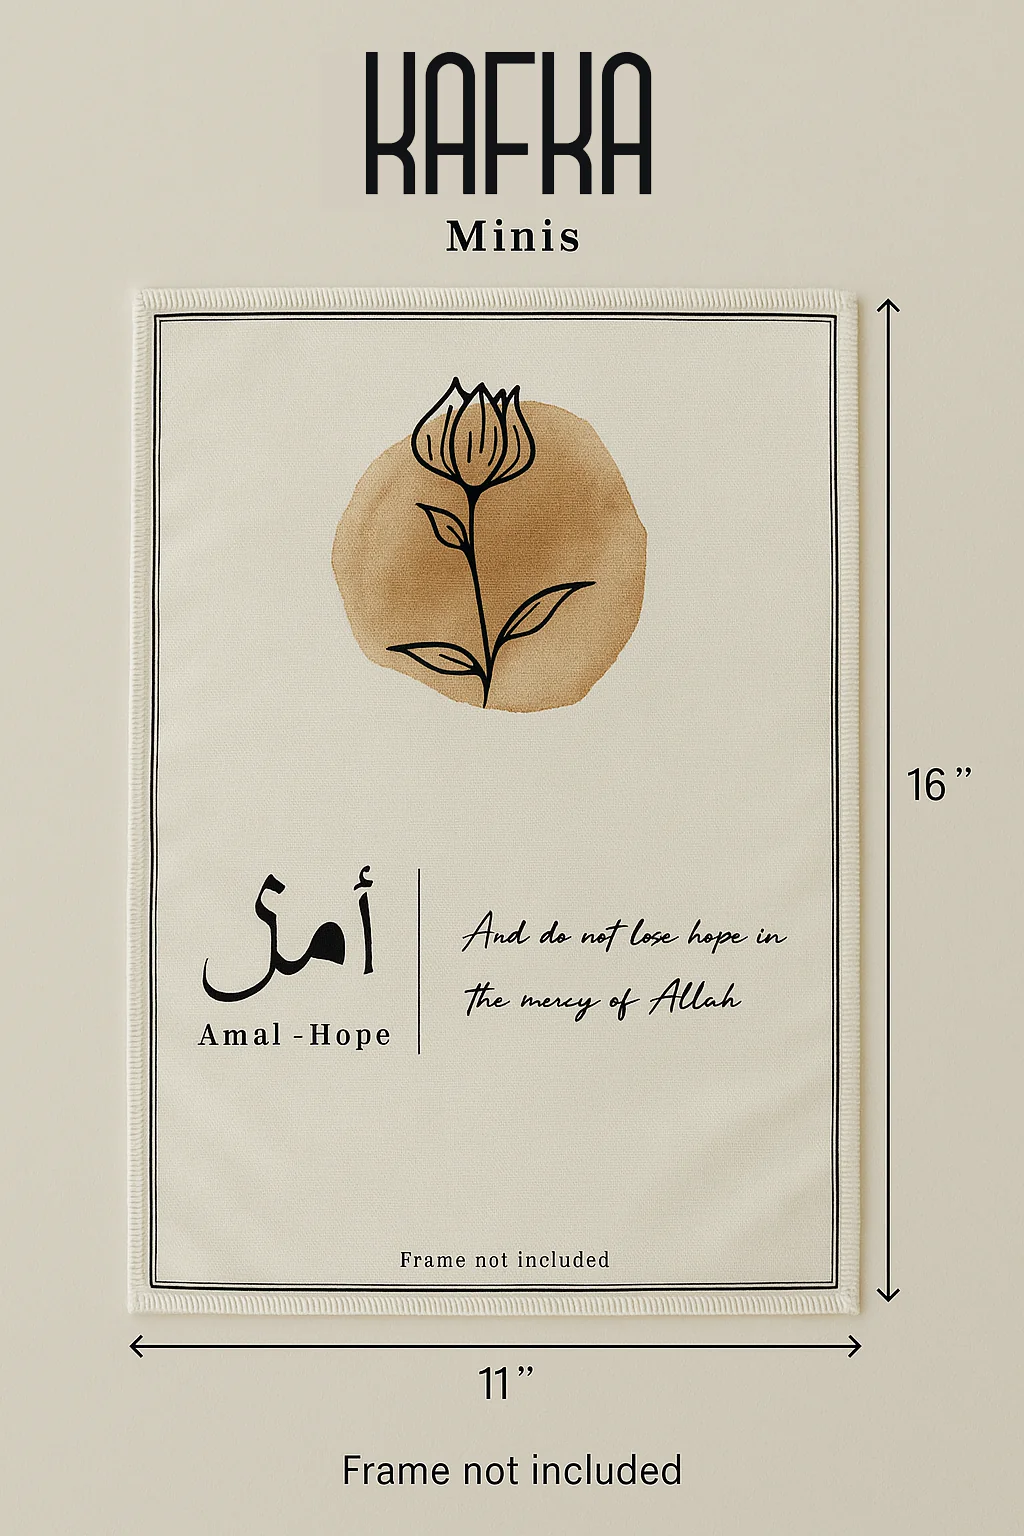 KAFKA
Minis
أمل
Amal -Hope
And do not lose hope in
the mercy of Allah
Frame not included
16”
11”
Frame not included